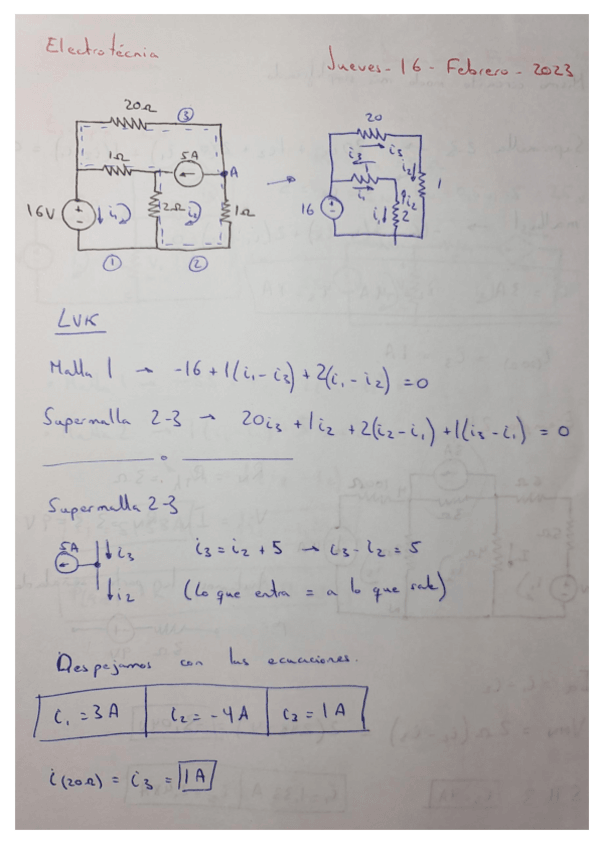 Electrotécnia
Jueves - 16 - Febrero - 2023
20Ω
③
1Ω
5A
A
16V
i₁
2Ω
i₂
1Ω
①
②
20
i₃
i₃
i₁
i₂
1
16
i₁
i₂
2
LVK
Malla 1 → -16 + 1(i₁ - i₃) + 2(i₁ - i₂) = 0
Supermalla 2-3 → 20i₃ + 1i₂ + 2(i₂ - i₁) + 1(i₃ - i₁) = 0
Supermalla 2-3
5A
i₃
i₂
i₃ = i₂ + 5 → i₃ - i₂ = 5
(lo que entra = a lo que sale)
Despejamos con las ecuaciones.
i₁ = 3 A
i₂ = -4 A
i₃ = 1 A
i(20Ω) = i₃ = 1 A